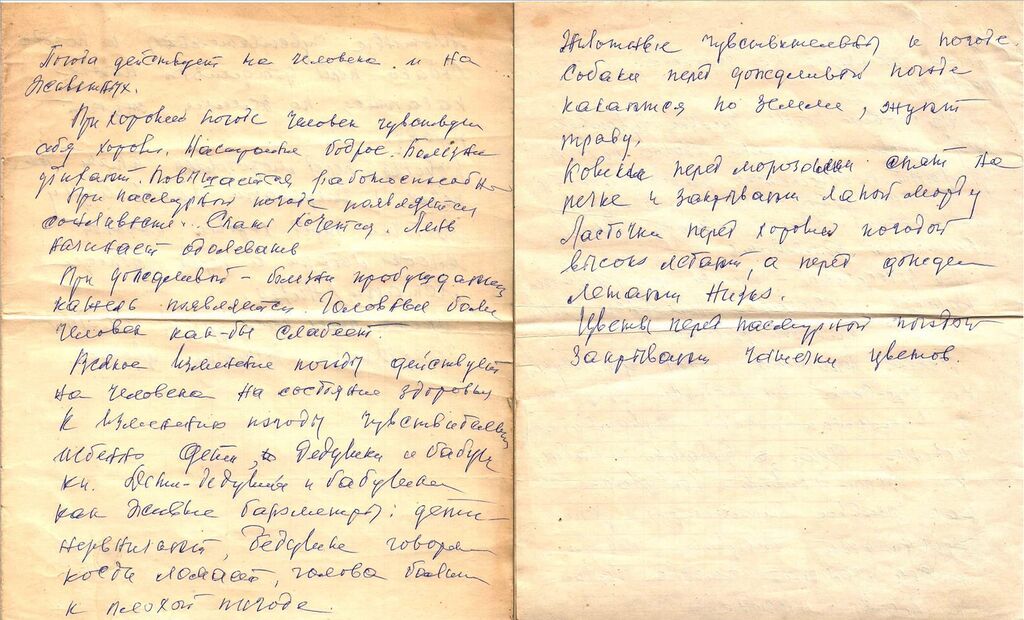 Погода действует на человека и на
животных.
При хорошей погоде человек чувствует
себя хорошо. Настроение бодрое. Болезни
утихают. Повышается работоспособно
При пасмурной погоде появляется
сонливость. Спать хочется. Лень
начинает одолевать
При дождливой - болезни пробуждаются
кашель появляется. Головные боли
Человек как-бы слабеет.
Всякое изменение погоды действует
на человека на состояние здоровья
К изменению погоды чувствительны
дети, дедушки и бабуш
ки. Дети-дедушки и бабушки
как живые барометры: дети
нервничают, дедушки говорят
кости ломает, голова болит
к плохой погоде.
Животные чувствительны к погоде.
Собаки перед дождливой погодой
катаются по земле, жуют
траву.
Кошки перед морозами спят на
печке и закрывают лапой морду
Ласточки перед хорошей погодой
высоко летают, а перед дождем
летают низко.
Цветы перед пасмурной погодой
закрывают чашечки цветов.